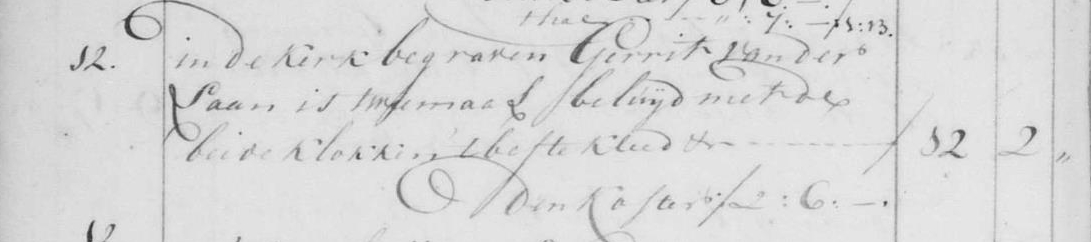 thae - - „ : 7 : - /: 13.
12. in de Kerk begraven Gerrit vander
Laan is tweemaal beluijd met de
beide klokken 't beste kleed &r 12 2 „
Den Koster ƒ 2 : 6 : -.